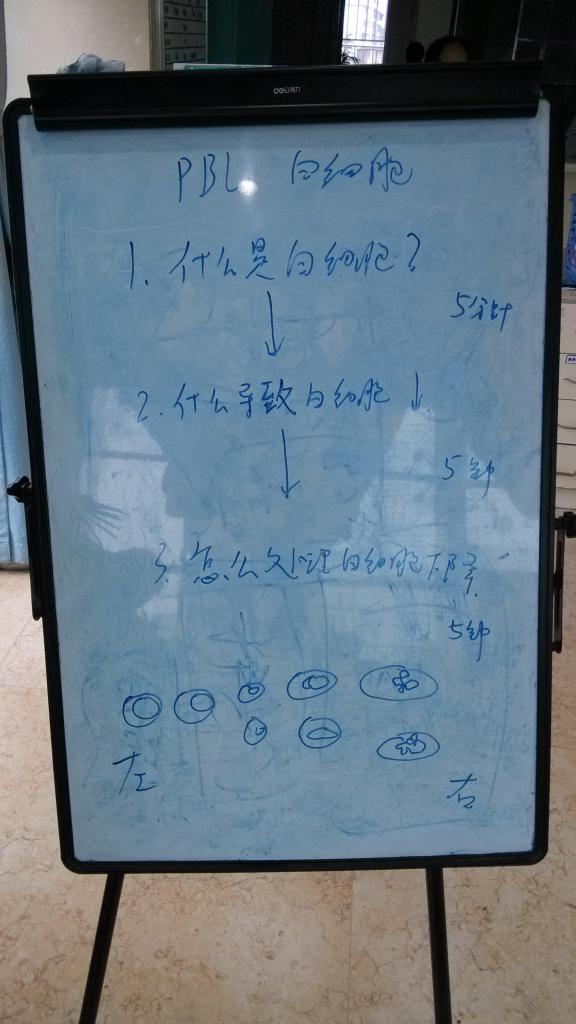 deli得力
PBL 白细胞
1. 什么是白细胞?
5分钟
2. 什么导致白细胞↓.
5钟
3. 怎么处理白细胞下降.
5钟
左
右